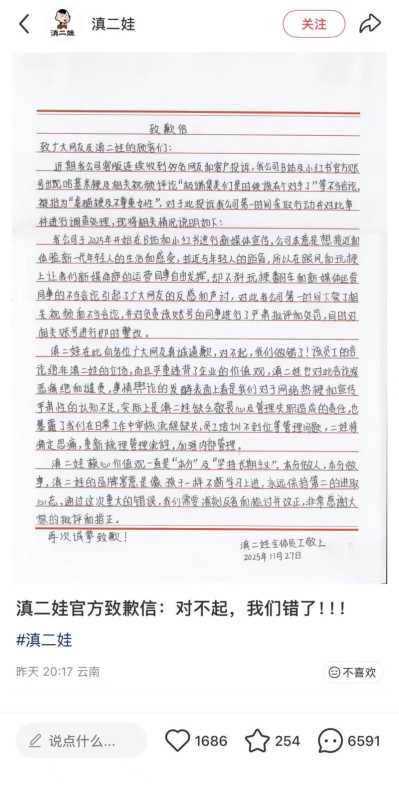 滇二娃
滇二娃
关注
致歉信
致广大网友及滇二娃的顾客们：
近期我公司客服连续收到
网友和客户投诉，我公司B站及小红书官方账
号出现
及相关视频评论
等不当言论，
对于此投诉我公司第一时间采取行动并对此事
件进行调查处理，现将相关情况说明如下：
我公司于2025年开始在B站和小红书进行新媒体宣传，公司本意是想接近和
体验新一代年轻人的生活和感受，拉近与年轻人的距离，所以在跟风和玩梗
上让我们新媒体部的运营同事自由发挥，却不料玩梗翻车和新媒体运营
同事的不当言论引起了广大网友的反感和声讨，对此我公司第一时间下架了相
关视频和不当言论，并对负责该账号的同事进行了严肃批评和处罚，同时对
相关账号进行即时整改。
滇二娃在此向各位广大网友真诚道歉，对不起，我们做错了！该员工的言
论绝非滇二娃的立场，而且严重违背了企业的价值观，滇二娃也对此言论深
恶痛绝和谴责，事情舆论的发酵表面上看是我们对于网络热梗和宣传
的认知不足，实际上是滇二娃缺乏敬畏心及管理失职造成的责任，也
暴露了我们在日常工作中审核流程缺失，员工培训不到位等管理问题，二娃将
痛定思痛，重新梳理管理流程，加强内部管理。
滇二娃核心价值观一直是“本分”及“坚持长期主义”，本分做人，本分做
事，滇二娃的品牌寓意是像孩子一样不断学习上进，永远保持第二的进取
心态，通过这次重大的错误，我们需要深刻反省和检讨并改正，非常感谢大
家的批评和指正。
再次诚挚致歉！
滇二娃全体员工敬上
2025年11月27日
滇二娃官方致歉信：对不起，我们错了！！！
#滇二娃
昨天 20:17 云南
不喜欢
说点什么...
1686
254
6591